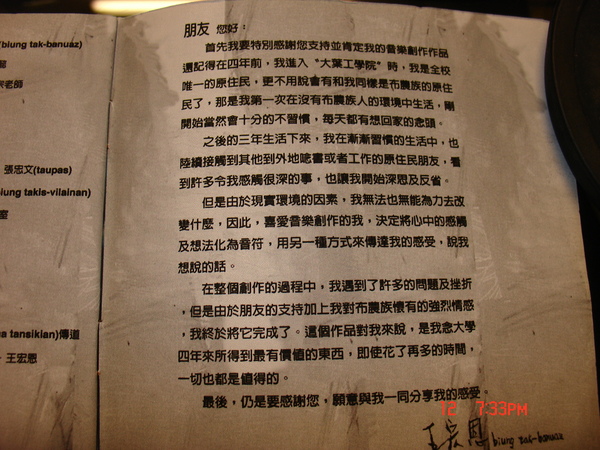 (biung tak-banuaz)
老師
張忠文(taupas)
biung takis-vilainan)
室
tansikian)傳道
王宏恩
朋友 您好:
首先我要特別感謝您支持並肯定我的音樂創作作品
還記得在四年前,我進入“大葉工學院”時,我是全校
唯一的原住民,更不用說會有和我同樣是布農族的原住
民了,那是我第一次在沒有布農族人的環境中生活,剛
開始當然會十分的不習慣,每天都有想回家的念頭。
之後的三年生活下來,我在漸漸習慣的生活中,也
陸續接觸到其他到外地唸書或者工作的原住民朋友,看
到許多令我感觸很深的事,也讓我開始深思及反省。
但是由於現實環境的因素,我無法也無能為力去改
變什麼,因此,喜愛音樂創作的我,決定將心中的感觸
及想法化為音符,用另一種方式來傳達我的感受,說我
想說的話。
在整個創作的過程中,我遇到了許多的問題及挫折
,但是由於朋友的支持加上我對布農族懷有的強烈情感
,我終於將它完成了。這個作品對我來說,是我念大學
四年來所得到最有價值的東西,即使花了再多的時間,
一切也都是值得的。
最後,仍是要感謝您,願意與我一同分享我的感受。
12 7:33PM
王宏恩 biung tak-banuaz